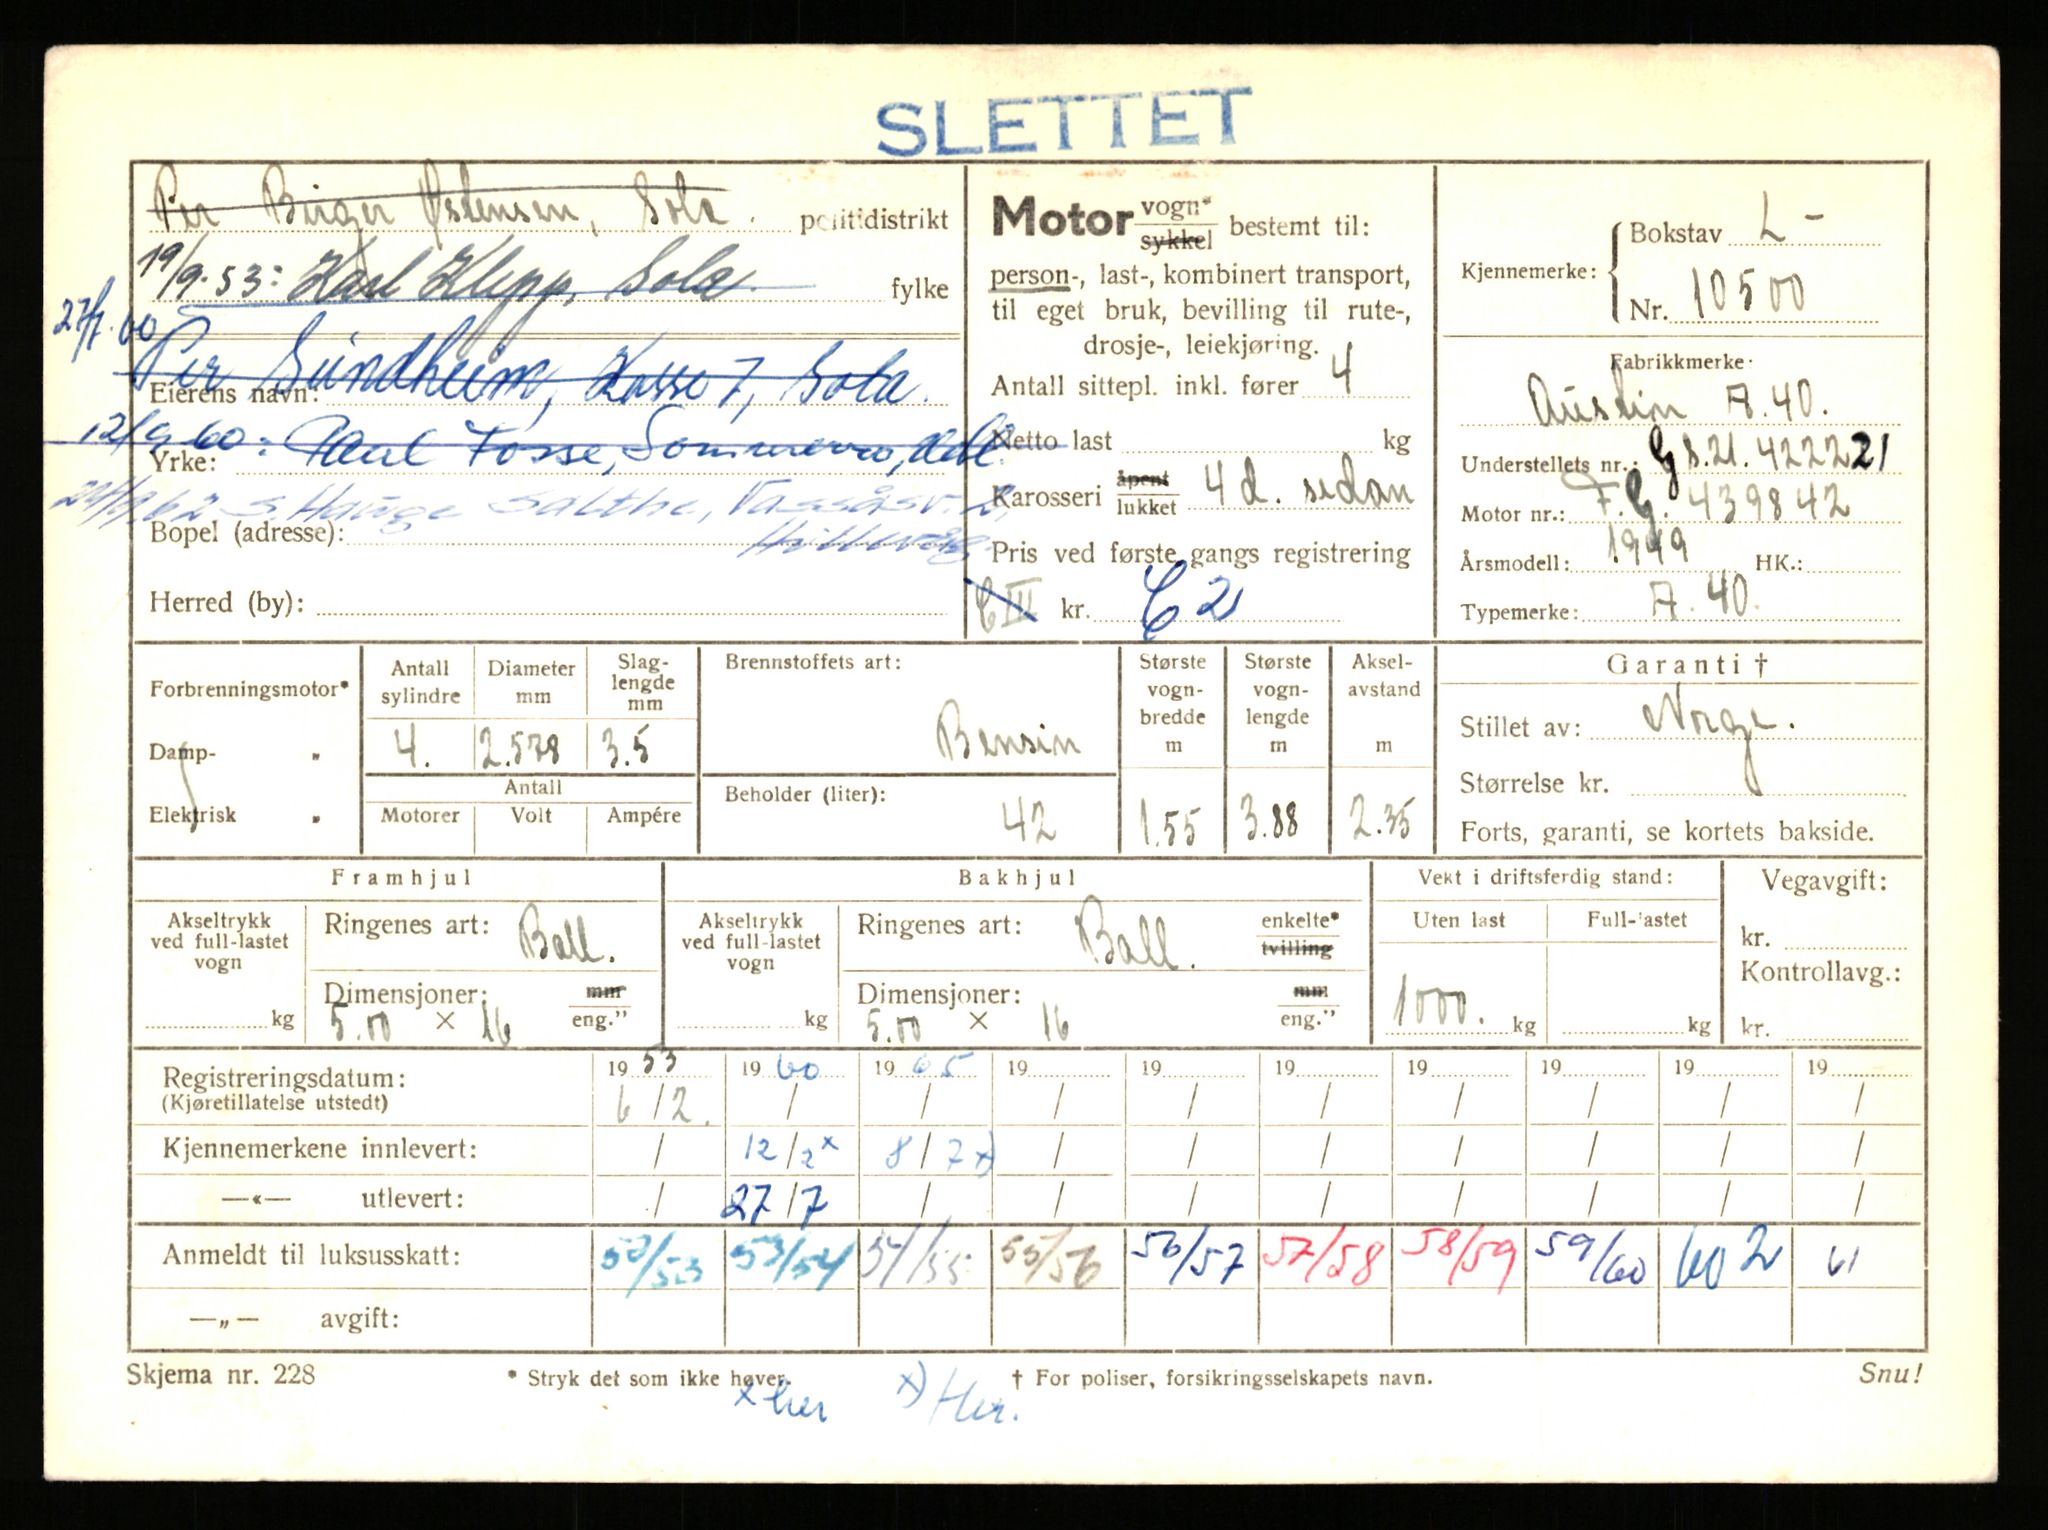 SLETTET
Per Birger Østensen, Sola. politidistrikt
19/9.53: Karl Klepp, Sola. fylke
27/7.60
Per Sundheim, Kasse 7, Sola.
Eierens navn:
12/9 60: Paul Fosse, Sommerro,
Yrke:
S. Hauge Salthe, Vassåsv. 2,
Bopel (adresse): Hillevåg
Herred (by):
Motor vogn* sykkel bestemt til:
person-, last-, kombinert transport,
til eget bruk, bevilling til rute-,
drosje-, leiekjøring.
Antall sittepl. inkl. fører 4
Netto last kg
Karosseri åpent lukket 4 d. sedan
Pris ved første gangs registrering
C III kr. C 2
Kjennemerke: Bokstav L-
Nr. 10500
Fabrikkmerke:
Austin A.40.
Understellets nr.: G S.2l. 422221
Motor nr.: F.G. 439842
Årsmodell: 1949 HK.:
Typemerke: A.40.
Forbrenningsmotor*
Damp- „
Elektrisk „
Antall sylindre Diameter mm Slag-lengde mm
4. 2.578 3.5
Antall
Motorer Volt Ampére
Brennstoffets art:
Bensin
Beholder (liter):
42
Største vogn-bredde m Største vogn-lengde m Aksel-avstand m
1.55 3.88 2.35
Garanti †
Stillet av: Norge.
Størrelse kr.
Forts, garanti, se kortets bakside.
Framhjul
Akseltrykk ved full-lastet vogn kg
Ringenes art: Ball.
Dimensjoner: mm eng."
5.00 × 16
Bakhjul
Akseltrykk ved full-lastet vogn kg
Ringenes art: Ball. enkelte* tvilling
Dimensjoner: mm eng."
5.00 × 16
Vekt i driftsferdig stand:
Uten last Full-lastet
1000. kg kg
Vegavgift:
kr.
Kontrollavg.:
kr.
Registreringsdatum: 19 53 19 60 19 65 19 19 19 19 19 19 19
(Kjøretillatelse utstedt) 6/2. / / / / / / / / /
Kjennemerkene innlevert: / 12/2 x 8/7 x) / / / / / / /
—«— utlevert: / 27/7 / / / / / / / /
Anmeldt til luksusskatt: 52/53 53/54 54/55 55/56 56/57 57/58 58/59 59/60 60 2 61
—„— avgift:
Skjema nr. 228 * Stryk det som ikke høver. † For poliser, forsikringsselskapets navn. Snu!
x her x) Her.